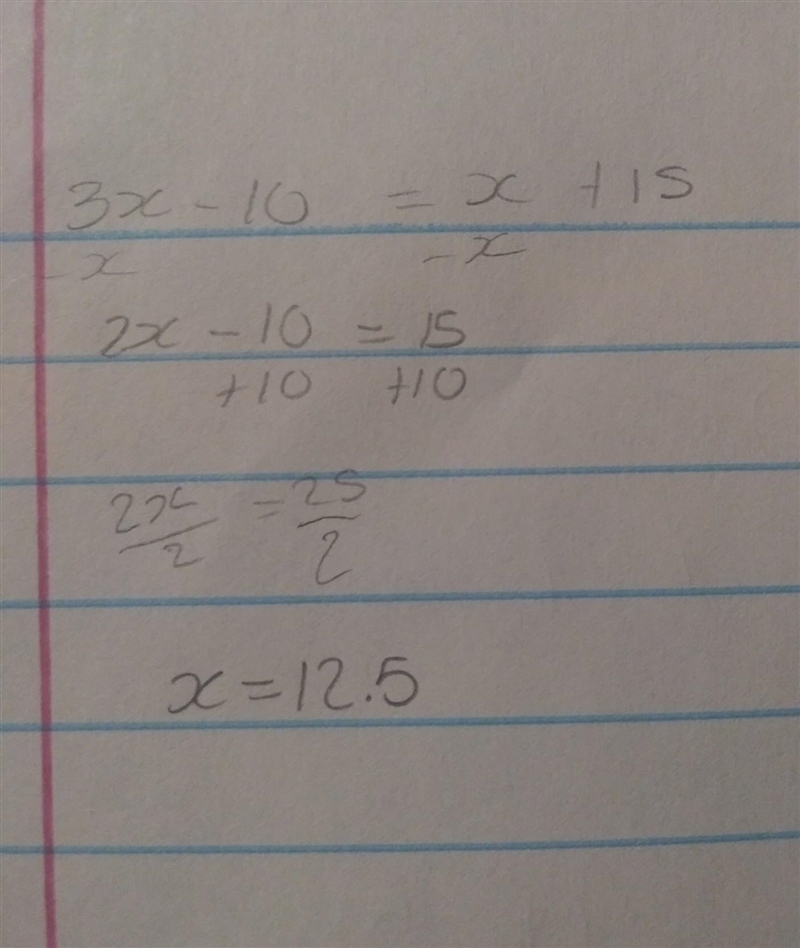 3x - 10 = x + 15
- x - x
2x - 10 = 15
+10 +10
2x/2 = 25/2
x = 12.5